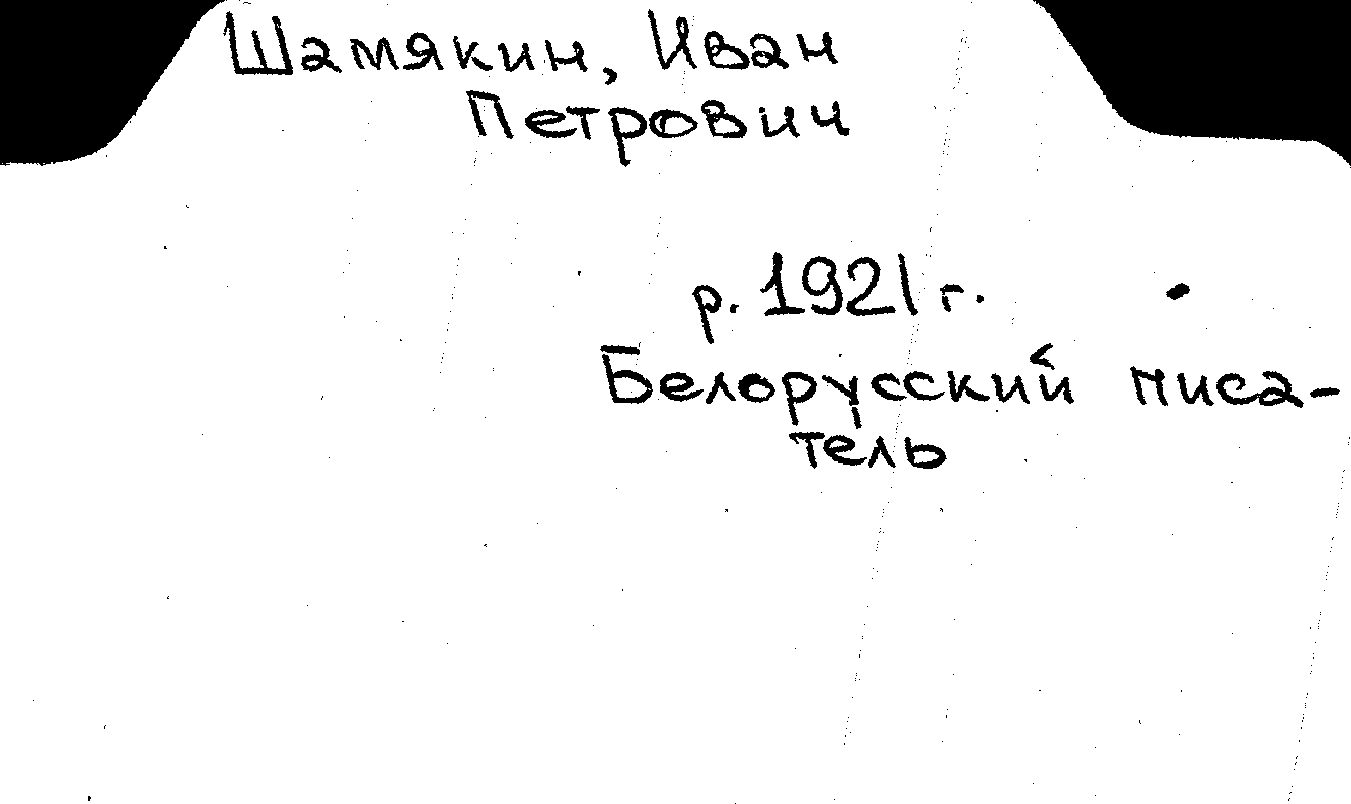 Шамякин, Иван
Петрович
р. 1921 г.
Белорусский писа-
тель